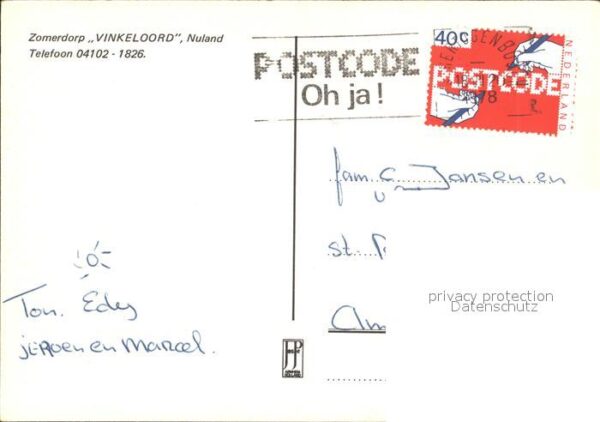 Zomerdorp „VINKELOORD", Nuland
Telefoon 04102 - 1826.
POSTCODE
Oh ja!
40c
POSTCODE
NEDERLAND
78
fam. G. Jansen en
st.
privacy protection
Datenschutz
Ton. Edy
jeroen en Marcel.